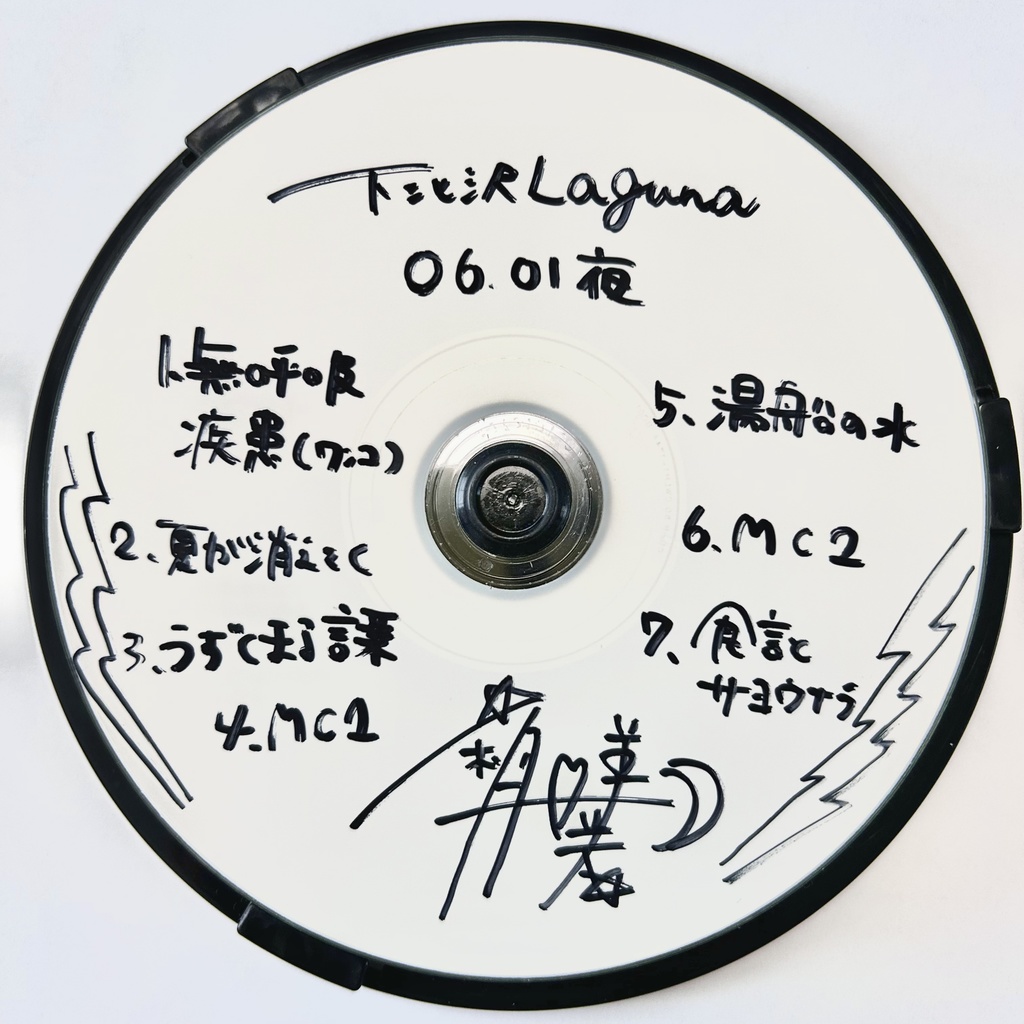 下北沢Laguna
06.01夜
1.無呼吸
疾患(ワンコ)
2.夏が消えてく
3.うずくまる
4.MC1
5.湯船の水
6.MC2
7.食言と
サヨウナラ